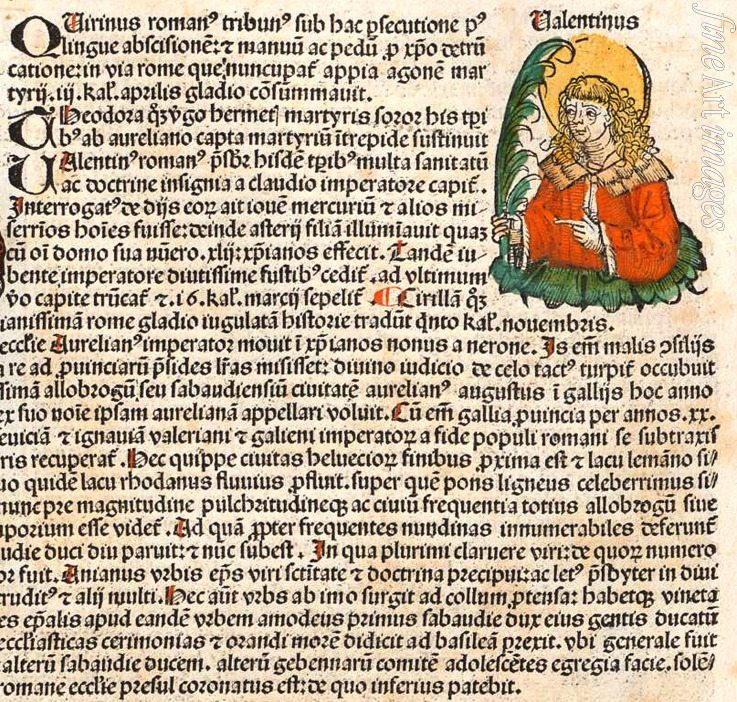 Valentinus
Quirinus romanꝰ tribunꝰ sub hac ꝑsecutione pꝰ
lingue abscisionē: ⁊ manuū ac pedū ꝓ xp̄o detrū
catione: in via rome que nuncupat᷑ appia agonē mar
tyrij. iij. kal̓. aprilis gladio cōsummauit.
Theodora qꝫ v̓go hermet martyris soror his tp̄i
bꝰ ab aureliano capta martyriū ītrepide sustinuit
Ualentinꝰ romanꝰ p̄sbr̄ hisdē tp̄ibꝰ multa sanitatū
ac doctrine insignia a claudio imperatore capit᷑.
Interrogatꝰ de dijs eoꝝ ait iouē mercuriū ⁊ alios mi-
serrīos hoīes fuisse: deinde asterij filiā illumīauit quaꝫ
cū oī domo sua nūero. xlij: xp̄ianos effecit. Tandē iu-
bente imperatore diutissime fustibꝰ cedit᷑. ad vltimum
v̓o capite trūcat᷑ ⁊. 16. kal̓. marcij sepelit᷑. ¶ Cirillā qꝫ
ianissimā rome gladio iugulatā historie tradūt qͥnto kal̓. nouembris.
eccl̓ie Aurelianꝰ imperator mouit ī xp̄ianos nonus a nerone. Is em̄ malis ꝯsilijs
a re ad ꝓuinciarū p̄sides lr̄as misisset: diuino iudicio de celo tactꝰ turpit᷑ occubuit
simā allobrogū, seu sabaudiensiū ciuitatē aurelianꝰ augustus ī gallijs hoc anno
ex suo noīe ipsam aurelianā appellari voluit. Cū em̄ gallia ꝓuincia per annos. xx.
euiciā ⁊ ignauiā valeriani ⁊ galieni imperatoꝝ a fide populi romani se subtraxis
ris recuperat᷑. Hec quippe ciuitas helueciorꝝ finibus ꝓxima est ⁊ lacu lemāno si/
uo quidē lacu rhodanus fluuius ꝓfluit. super quē pons ligneus celeberrimus si/
nunc pre magnitudine pulchritudineqꝫ ac ciuiū frequentia totius allobrogū siue
uporium esse videt᷑. Ad quā ꝓpter frequentes nundinas innumerabiles deferunt᷑
udie duci diu paruit: ⁊ nūc subest. In qua plurimi claruere viri: de quoꝝ numero
or fuit. Anianus vrbis ep̄s viri sctitate ⁊ doctrina precipui: ac letꝰ p̄sbyter in diui
ruditꝰ ⁊ alij multi. Hec aūt vrbs ab imo surgit ad collum ꝓtensa: habetqꝫ vineta
es ep̄alis apud eandē vrbem amodeus primus sabaudie dux eius gentis ducatū
eccl̓iasticas cerimonias ⁊ orandi morē didicit ad basileā ꝑrexit. vbi generale fuit
alterū sabaudie ducem. alterū gebennarū comitē adolescētes egregia facie. solē/
romane eccl̓ie presul coronatus est: de quo inferius patebit.
fine Art images